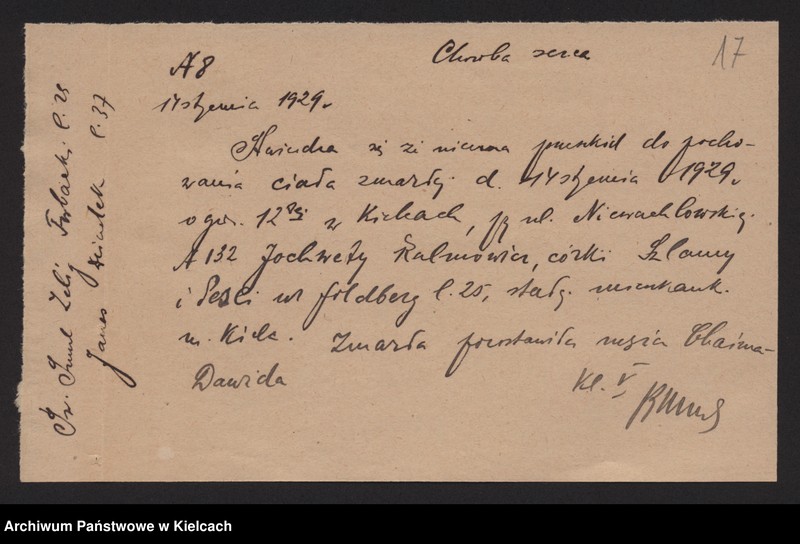 Choroba serca
17
A 8
14 stycznia 1929 r.
się że niema przeszkód do pocho-
wania ciała zmarłej d. 14 stycznia 1929 r.
o godz. 12 w Kielcach, przy ul. Niewachlowskiej
A 132 Jochwety Kalmowicz, córki Szlamy
i Pesli ur. Goldberg l. 25, stałej mieszkank.
m. Kielc. Zmarła pozostawiła męża Chaima-
Dawida
Kl. V
Św. Szmul Zelig l. 25
l. 37
Archiwum Państwowe w Kielcach